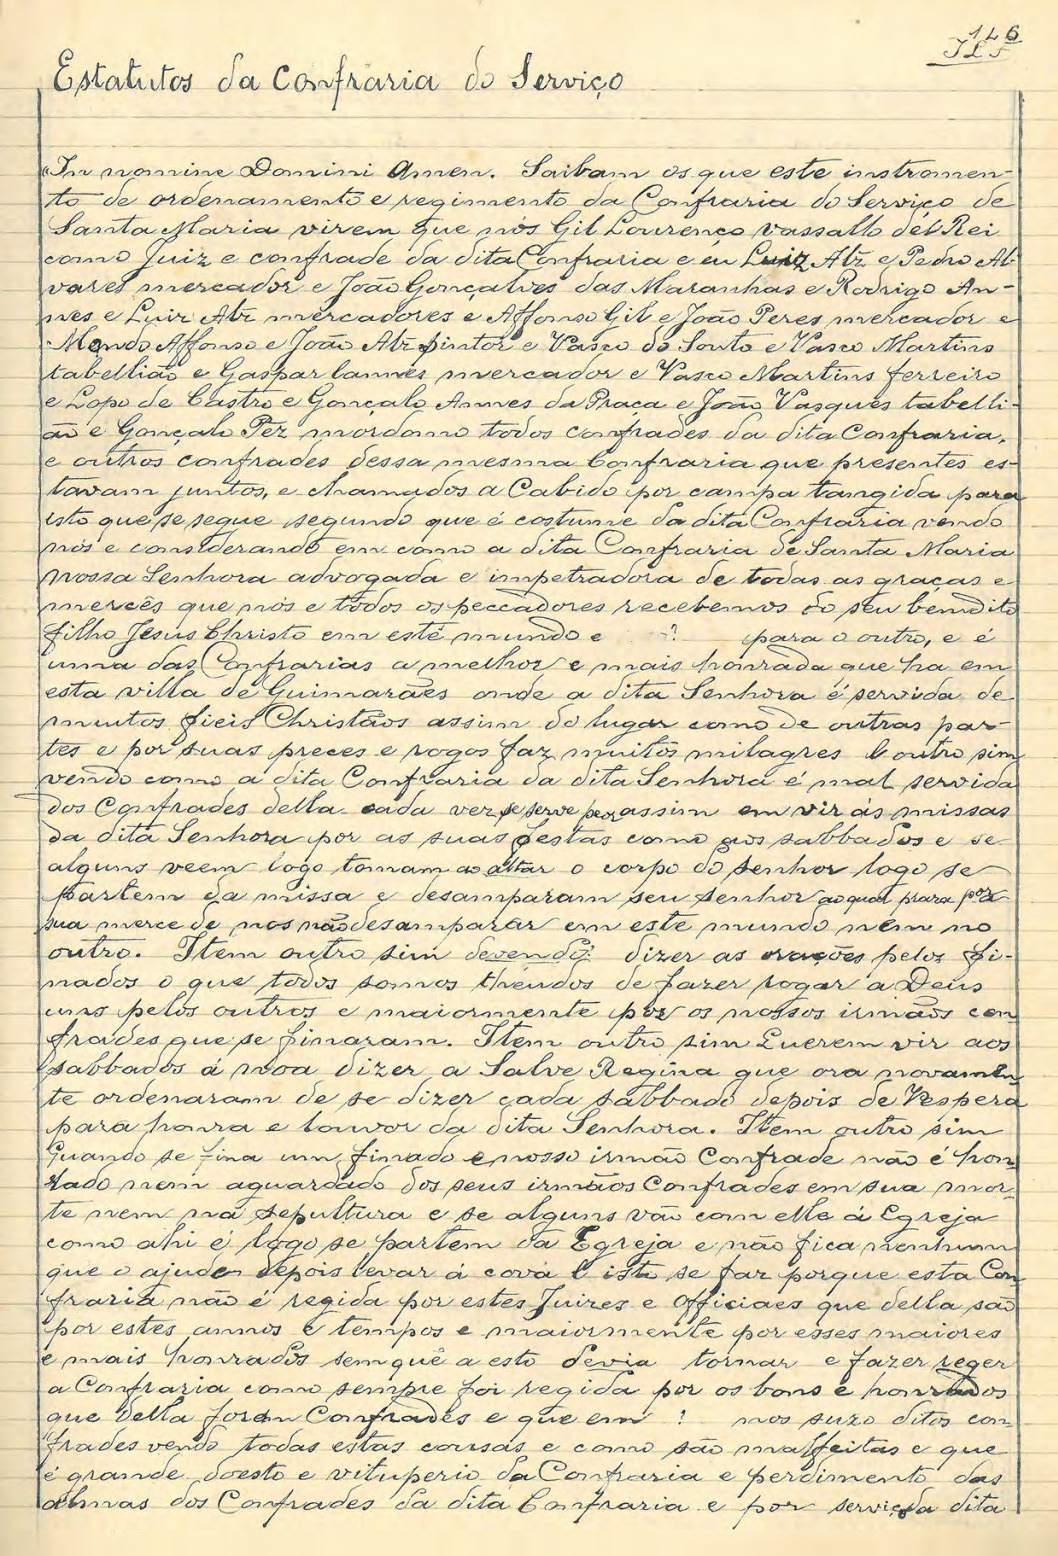 146
Estatutos da Confraria do Serviço
"In nomine Domini Amen. Saibam os que este instromen-
to de ordenamento e regimento da Confraria do Serviço de
Santa Maria virem que nós Gil Lourenço vassallo del Rei
como Juiz e confrade da dita Confraria e eu Luiz Alz e Pedro Al
vares mercador e João Gonçalves das Maranhas e Rodrigo An-
nes e Luiz Alz mercadores e Affonso Gil e João Peres mercador e
Mendo Affonso e João Alz pintor e Vasco do Souto e Vasco Martins
tabellião e Gaspar Eannes mercador e Vasco Martins ferreiro
e Lopo de Castro e Gonçalo Annes da Praça e João Vasques tabelli-
ão e Gonçalo Pez mordomo todos confrades da dita Confraria,
e outros confrades dessa mesma Confraria que presentes es-
tavam juntos, e chamados a Cabido por campa tangida para
isto que se segue segundo que é costume da dita Confraria vendo
nós e considerando em como a dita Confraria de Santa Maria
Nossa Senhora advogada e impetradora de todas as graças e
mercês que nós e todos os peccadores recebemos do seu bendito
filho Jesus Christo em este mundo e ? para o outro, e é
uma das Confrarias a melhor e mais honrada que ha em
esta villa de Guimarães onde a dita Senhora é servida de
muitos fieis Christãos assim do lugar como de outras par-
tes e por suas preces e rogos faz muitos milagres E outro sim
vendo como a dita Confraria da dita Senhora é mal servida
dos Confrades della cada vez se serve peor assim em vir ás missas
da dita Senhora por as suas festas como aos sabbados e se
alguns veem logo tomam ao altar o corpo do Senhor logo se
partem da missa e desamparam seu Senhor ao qual praza por
sua merce de nos não desamparar em este mundo nem no
outro. Item outro sim devendo? dizer as orações pelos fi-
nados o que todos somos theudos de fazer rogar a Deus
uns pelos outros e maiormente por os nossos irmãos con
frades que se finaram. Item outro sim Querem vir aos
sabbados á noa dizer a Salve Regina que ora novamen
te ordenaram de se dizer cada sabbado depois de Vespera
para honra e louvor da dita Senhora. Item outro sim
Quando se fina um finado e nosso irmão Confrade não é hon
rado nem aguardado dos seus irmãos Confrades em sua mor-
te nem na sepultura e se alguns vão com elle á Egreja
como ahi é logo se partem da Egreja e não fica nenhum
que o ajude depois levar á cova E isto se faz porque esta Con
fraria não é regida por estes Juizes e Officiaes que della são
por estes annos e tempos e maiormente por esses maiores
e mais honrados sem quê a esto devia tornar e fazer reger
a Confraria como sempre foi regida por os bons e honrados
que della foram Confrades e que em ? nos suzo ditos con
frades vendo todas estas cousas e como são malfeitas e que
é grande doesto e vituperio da Confraria e perdimento das
almas dos Confrades da dita Confraria e por serviço da dita